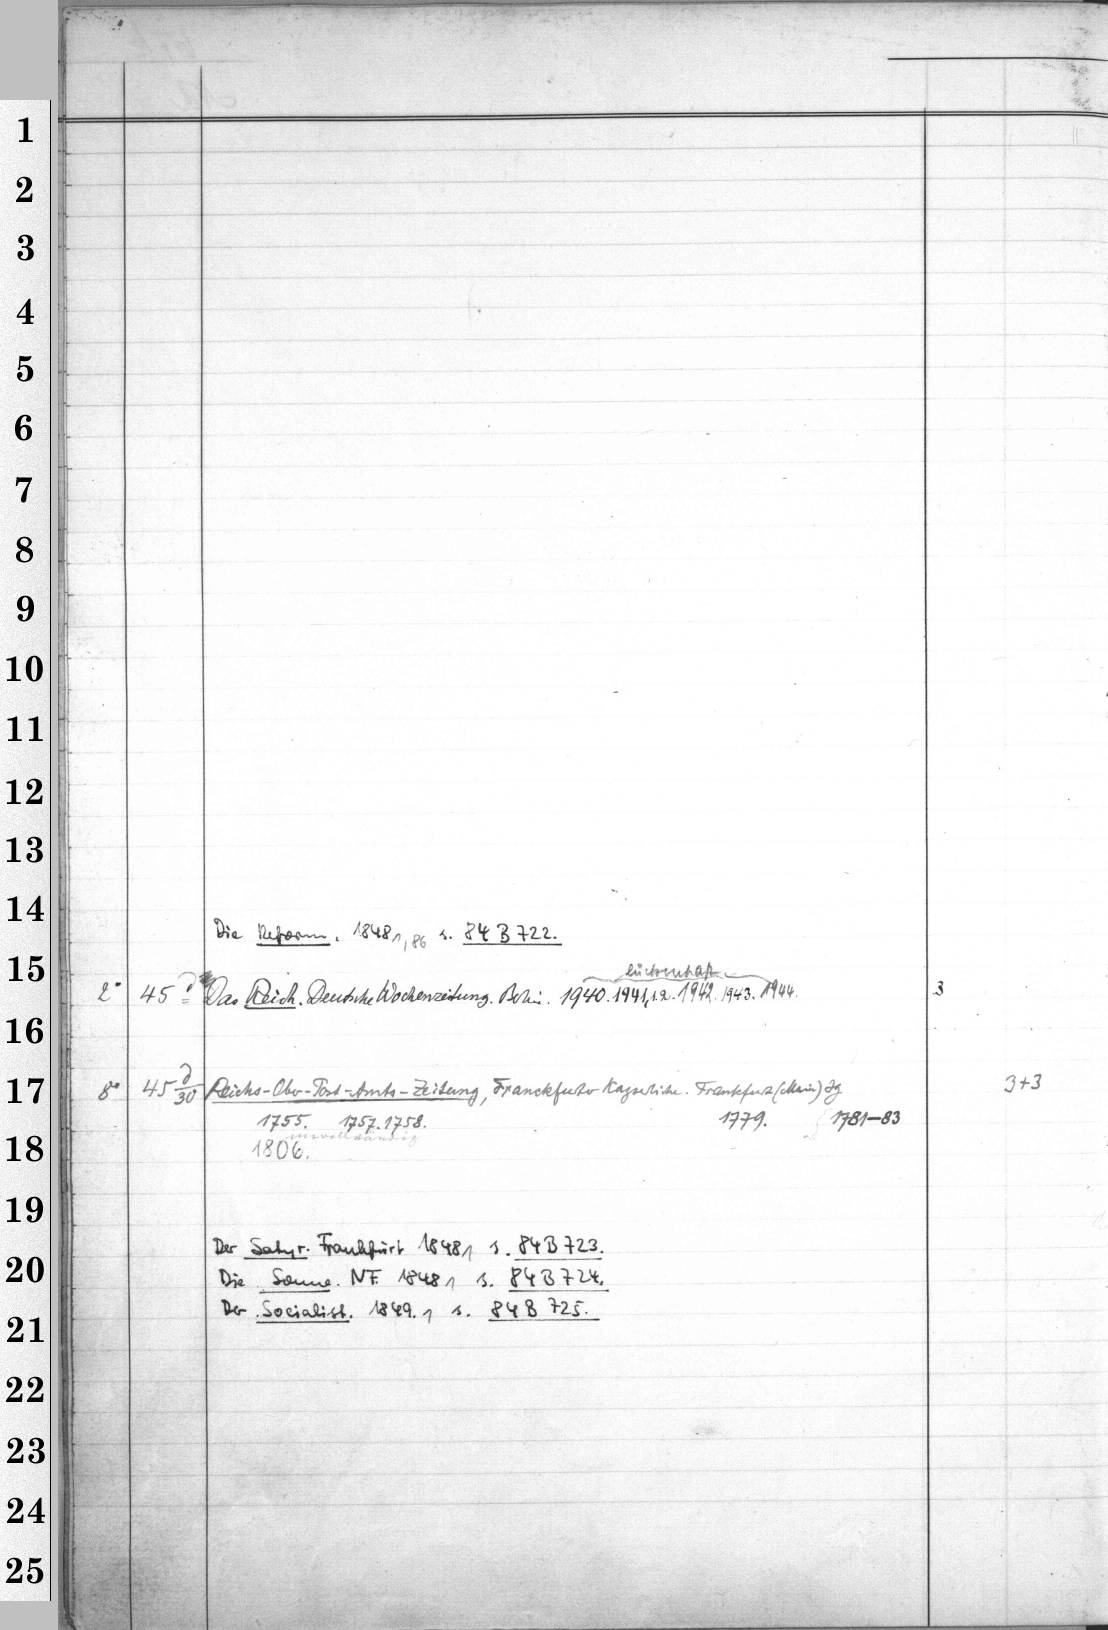 1
2
3
4
5
6
7
8
9
10
11
12
13
14
Die Reform. 1848 1,86 s. 84 B 722.
15
lückenhaft
2° 45 Das Reich. Deutsche Wochenzeitung. Berlin. 1940. 1941,1.2. 1942. 1943. 1944. 3
16
17
8° 45 30 Reichs-Ober-Post-Amts-Zeitung, Franckfurter Kayserliche. Frankfurt (Main) Jg 3+3
1755. 1757. 1758. 1779. 1781–83
unvollständig
18
1806.
19
Der Satyr. Frankfurt 1848 1 s. 84 B 723.
20
Die Sonne. NF. 1848 1 s. 84 B 724.
Der Socialist. 1849. 1 s. 84 B 725.
21
22
23
24
25